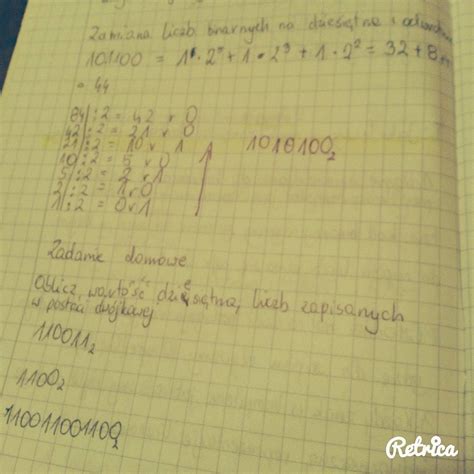 Zamiana liczb binarnych na dziesiętne i odwrotnie
101100 = 1·2⁵+1·2³+1·2² = 32+8+
= 44
84 :2 = 42 r 0
42 :2 = 21 r 0
21 :2 = 10 r 1
10 :2 = 5 r 0
5 :2 = 2 r 1
2 :2 = 1 r 0
1 :2 = 0 r 1
1010100₂
Zadanie domowe
Oblicz wartość dziesiętną liczb zapisanych
w postaci dwójkowej
110011₂
1100₂
110011001100₂
Retrica